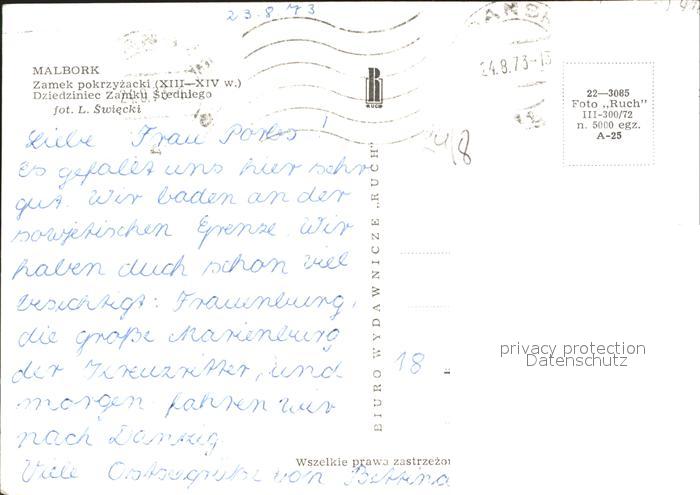 23.8.73
MALBORK
Zamek pokrzyżacki (XIII—XIV w.)
Dziedziniec Zamku Średniego
fot. L. Święcki
R
RUCH
24.8.73-13
22—3085
Foto „Ruch"
III-300/72
n. 5000 egz.
A-25
Liebe Frau Portes!
Es gefällt uns hier sehr
gut. Wir baden an der
sowjetischen Grenze. Wir
haben auch schon viel
besichtigt: Frauenburg,
die große Marienburg
der Kreuzritter, und
morgen fahren wir
nach Danzig.
Viele Ostseegrüße von Bettina
24/8
BIURO WYDAWNICZE „RUCH"
18
Wszelkie prawa zastrzeżon
privacy protection
Datenschutz